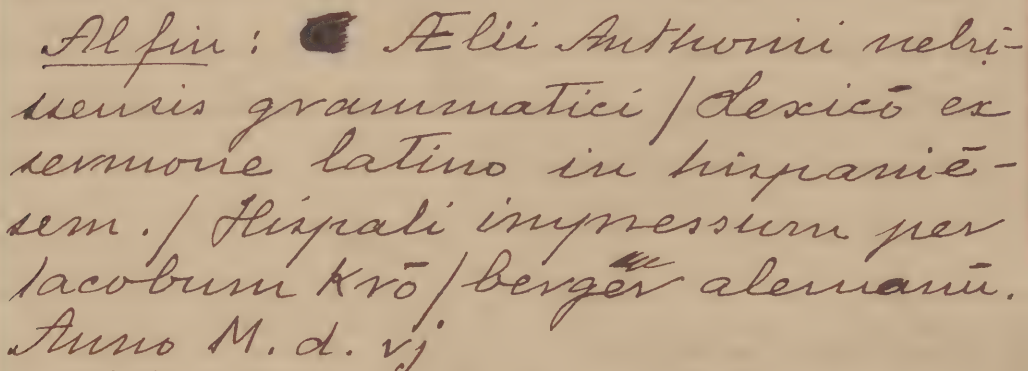 Al fin : Ælii Anthonii nebri-
ssensis grammatici / lexicō ex
sermone latino in hispaniē-
sem. / Hispali impressum per
Iacobum Krō / berger alemanū.
Anno M. d. vj